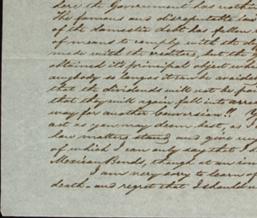 dere the Government has nothin
The famous and disreputable law
of the domestic debt has follow
of means to comply with the d
made with the but the
attained its principal object whi
anybody so long as it can be avoided
that the dividends will not be pa
that they will again fall into arre
way for another Conversion!!
act as you may deem best, as I
law matters stand, and give me
of which I can only say that I
Mexican Bonds, change at an im
I am very sorry to learn of
death, and regret that I should n